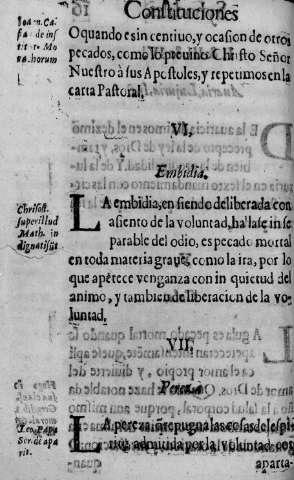 Constituciones
Joan. Ca-
O quando es incentiuo, y ocasion de otros
pecados, como lo preuino Christo Señor
Nuestro à sus Apostoles, y repetimos en la
carta Pastoral.
VI.
Embidia.
Chrisost.
super illud
Matth. in
dignati sũt
LA embidia, en siendo deliberada con
asiento de la voluntad, hallase inse
parable del odio, es pecado mortal
en toda materia graue, como la ira, por lo
que apetece venganza con inquietud del
animo, y tambien deliberacion de la vo-
luntad.
VII.
Pereza
Leo Papa
Ser. de apa
rit.
LA pereza, si repugna las cosas de espi
ritu, admitida por la voluntad con
aparta-